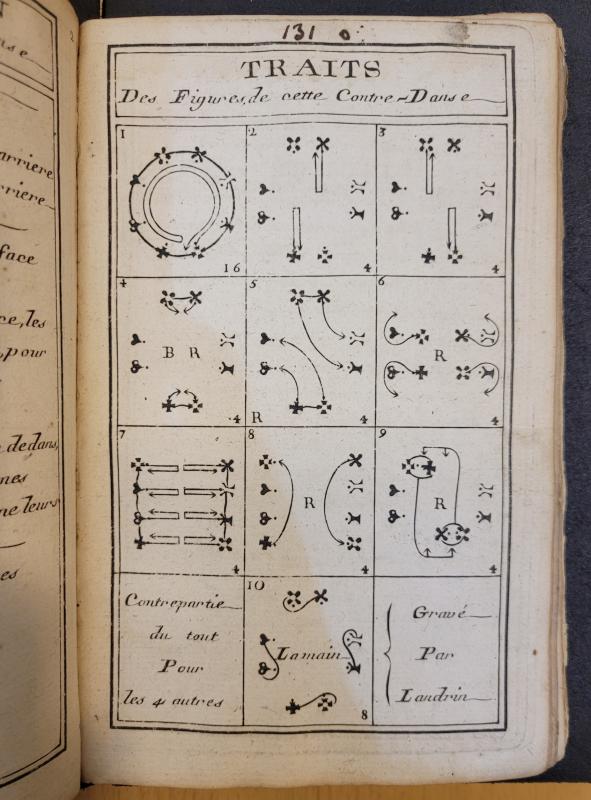 nse
arriere
rriere
face
ce, les
pour
dedans,
nes
ne leurs
es
131
TRAITS
Des Figures, de cette Contre-Danse
1
16
2
4
3
4
4
B R
4
5
R
4
6
R
4
7
4
8
R
4
9
R
4
Contrepartie
du tout
Pour
les 4 autres
10
La main
8
Gravé
Par
Landrin